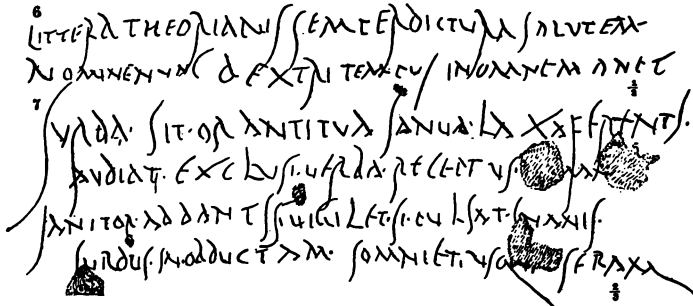 6
LITTERA THEORIANIS SEMPER DICTURA SALUTEM
NOMINE NUNC DEXTRI TEMPUS IN OMNE MANET
7
SURDA SIT ORANTI TUA IANUA LAXA FERENTI
AUDIAT EXCLUSI VERBA RECEPTUS AMA
IANITOR AD DANTIS VIGILET SI PULSAT INANIS
SURDUS IN OBDUCTAM SOMNIET USQUE SERAM